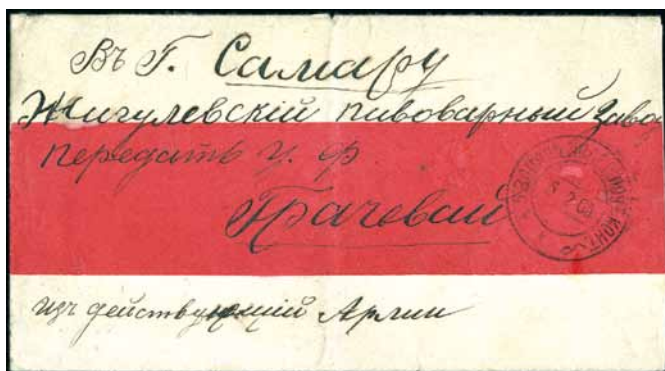 Въ Г. Самару
Жигулевскій пивоварный Завод
передать У. Ф.
Грачевай
изъ действующий Армии